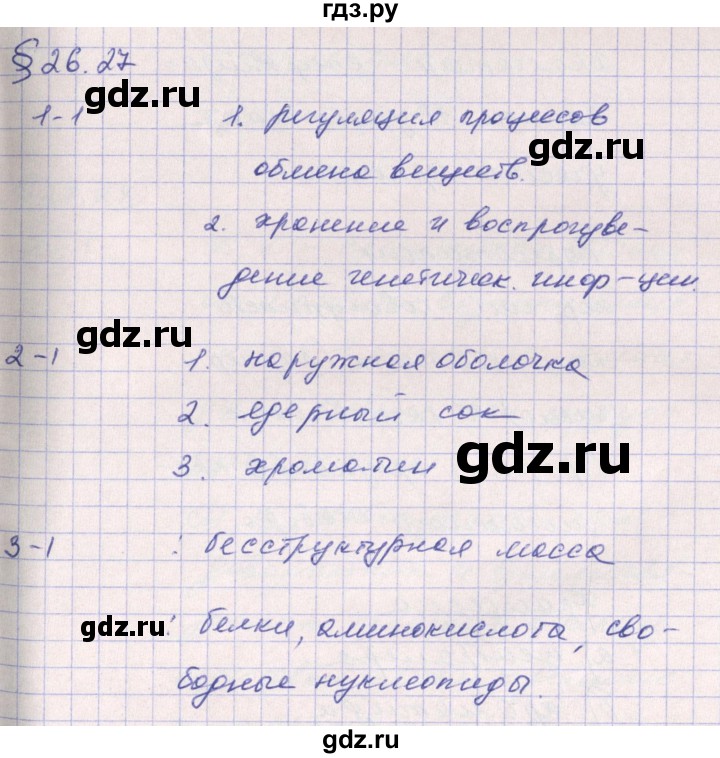 гдз.ру
§ 26.27
gdz.ru
1-1 1. регуляция процессов
gdz.ru
обмена веществ.
2. хранение и воспроизве-
дение генетичек. инфор-ции.
gdz.ru
2-1 1. наружная оболочка
2. ядерный сок
gdz.ru
3. хроматин
3-1 : бесструктурная масса
gdz.ru : белки, аминокислота, сво-
бодные нуклеотиды.
gdz.ru